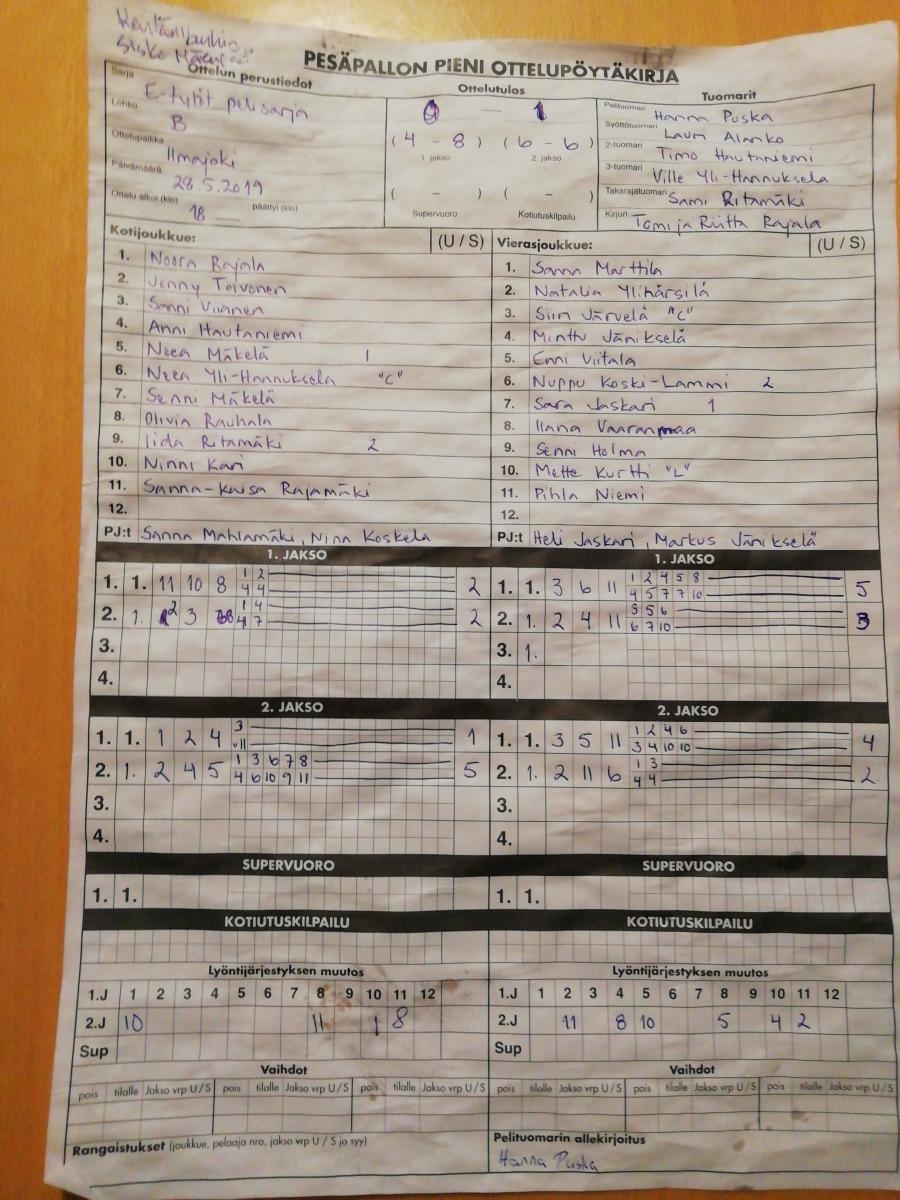 PESÄPALLON PIENI OTTELUPÖYTÄKIRJA
Ottelun perustiedot
Sarja E-tytöt pelisarja
Lohko B
Ottelupaikka Ilmajoki
Päivämäärä 28.5.2019
Ottelu alkoi (klo) 18 päättyi (klo)
Ottelutulos
0 – 1
(4 - 8) (6 - 6)
1. jakso 2. jakso
( - ) ( - )
Supervuoro Kotiutuskilpailu
Tuomarit
Pelituomari Hanna Puska
Syöttötuomari Lauri Alanko
2-tuomari Timo Hautaniemi
3-tuomari Ville Yli-Hannuksela
Takarajatuomari Sami Ritamäki
Kirjuri Tomi ja Riitta Rajala
Kotijoukkue: (U / S)
1. Noora Rajala
2. Jenny Toivonen
3. Sanni Viianen
4. Anni Hautaniemi
5. Neea Mäkelä 1
6. Neea Yli-Hannuksela "C"
7. Senni Mäkelä
8. Olivia Rauhala
9. Iida Ritamäki 2
10. Ninni Kari
11. Sanna-Kaisa Rajamäki
12.
PJ:t Sanna Mahlamäki, Nina Koskela
Vierasjoukkue: (U / S)
1. Sanna Marttila
2. Natalia Ylihärsilä
3. Siiri Järvelä "C"
4. Minttu Jänikselä
5. Enni Viitala
6. Nuppu Koski-Lammi 2
7. Sara Jaskari 1
8. Ilana Vaaranmaa
9. Senni Holma
10. Mette Kurtti "L"
11. Pihla Niemi
12.
PJ:t Heli Jaskari, Markus Jänikselä
1. JAKSO
1. 1. 11 10 8 1 2 2
4 4
2. 1. 2 3 1 4 2
4 7
3.
4.
1. JAKSO
1. 1. 3 6 11 1 2 4 5 8 5
4 5 7 7 10
2. 1. 2 4 11 3 5 6 3
6 7 10
3. 1.
4.
2. JAKSO
1. 1. 1 2 4 3 1
v11
2. 1. 2 4 5 1 3 6 7 8 5
4 6 10 9 11
3.
4.
2. JAKSO
1. 1. 3 5 11 1 2 4 6 4
3 4 10 10
2. 1. 2 11 6 1 3 2
4 4
3.
4.
SUPERVUORO
1. 1.
SUPERVUORO
1. 1.
KOTIUTUSKILPAILU
KOTIUTUSKILPAILU
Lyöntijärjestyksen muutos
1.J 1 2 3 4 5 6 7 8 9 10 11 12
2.J 10 11 1 8
Sup
Lyöntijärjestyksen muutos
1.J 1 2 3 4 5 6 7 8 9 10 11 12
2.J 11 8 10 5 4 2
Sup
Vaihdot
pois tilalle Jakso vrp U / S pois tilalle Jakso vrp U / S pois tilalle Jakso vrp U / S
Vaihdot
pois tilalle Jakso vrp U / S pois tilalle Jakso vrp U / S pois tilalle Jakso vrp U / S
Rangaistukset (joukkue, pelaaja nro, jakso vrp U / S ja syy)
Pelituomarin allekirjoitus
Hanna Puska